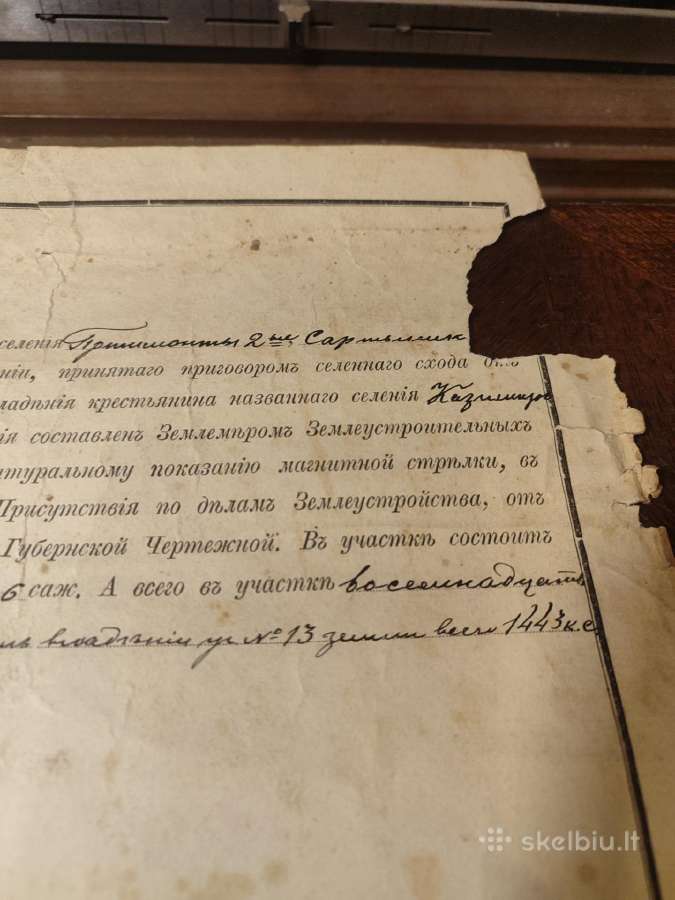 селенія Потимонты 2ые
ніи, принятаго приговоромъ селеннаго схода отъ
ладѣнія крестьянина названнаго селенія Казимира
ія составленъ Землемѣромъ Землеустроительныхъ
атуральному показанію магнитной стрѣлки, въ
Присутствія по дѣламъ Землеустройства, отъ
Губернской Чертежной. Въ участкѣ состоитъ
6 саж. А всего въ участкѣ восемнадцать
владѣніи уч №13 земли всего 1443 к. с.
skelbiu.lt